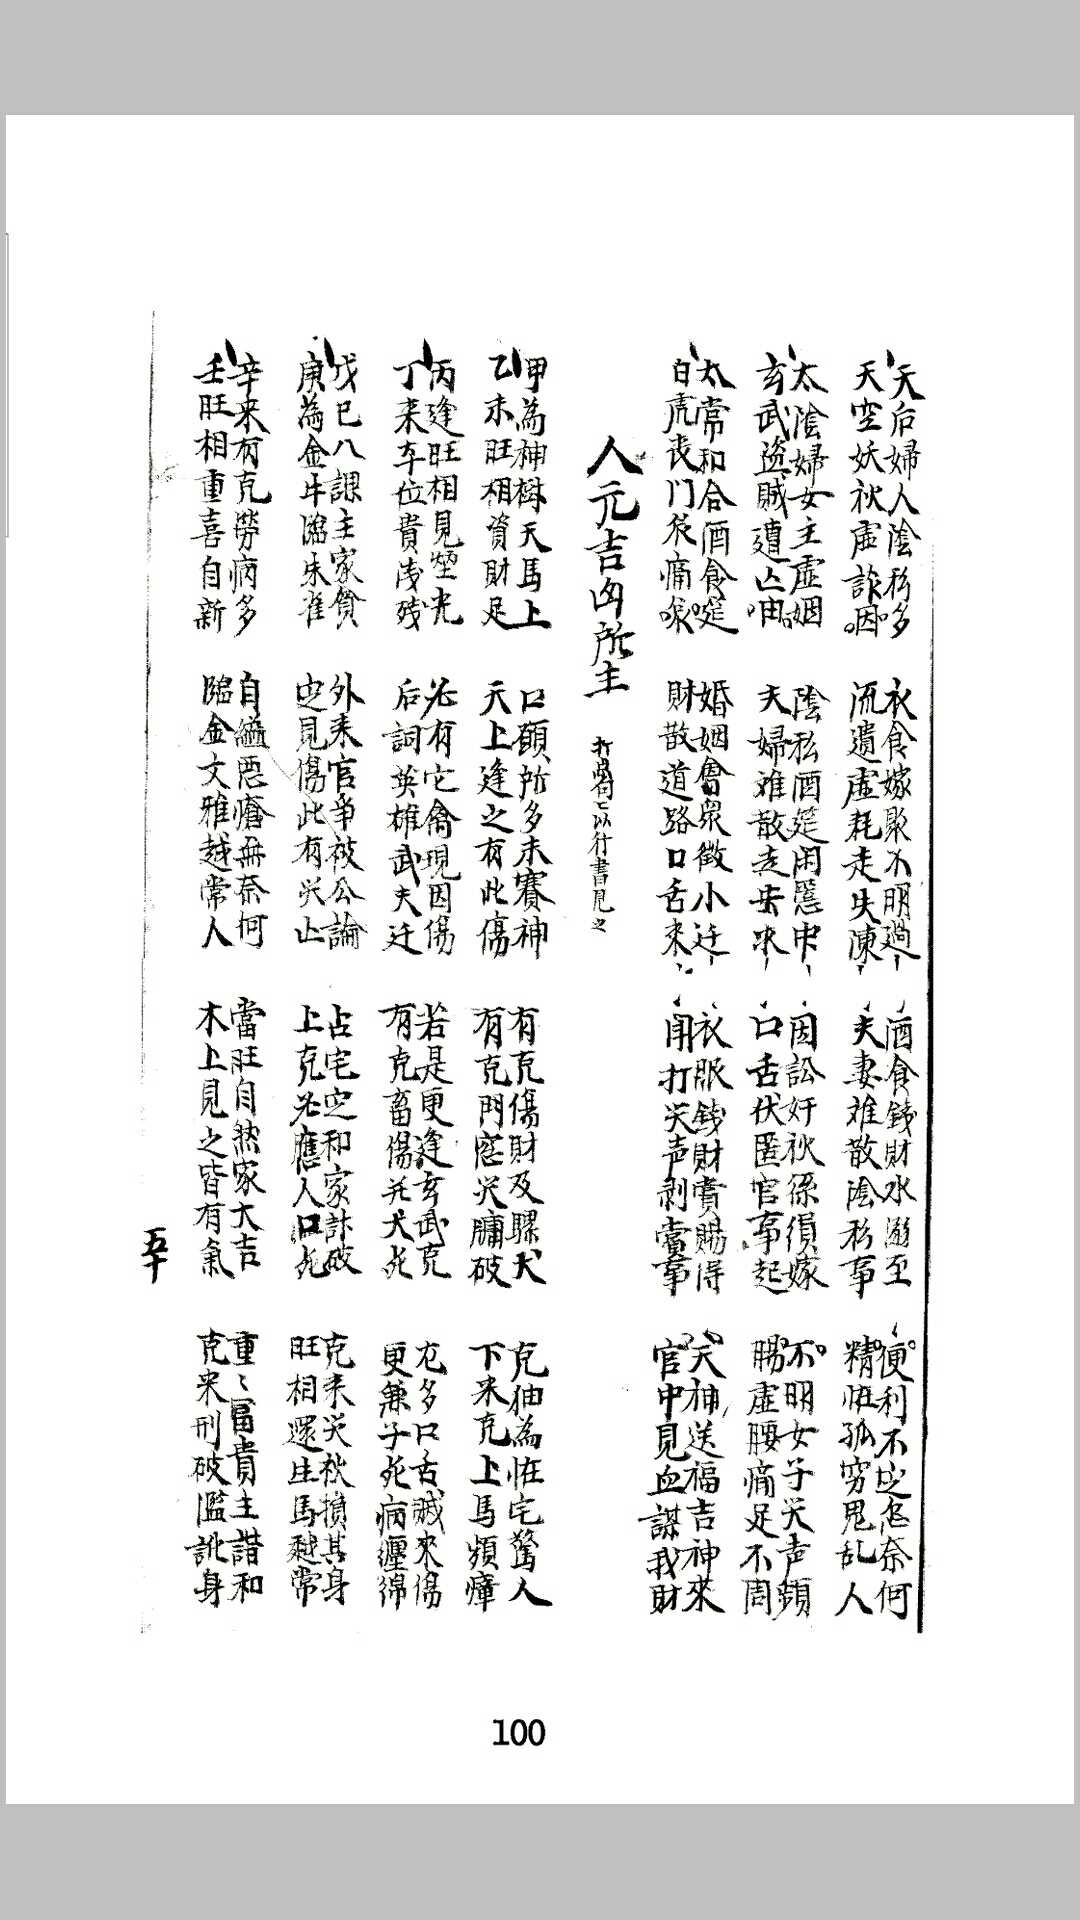 天后婦人陰私多 衣食嫁娶不明過 酒食錢財水溺至 便利不定怎奈何
天空妖秋虛詐因 流遺虛耗走失陳 夫妻难散陰私事 精怪孤窮鬼乱人
太陰婦女主虛姻 陰私酒筵用隱中 因訟奸秋孫損嫁 不明女子哭声頻
玄武盜賊遭亡 夫婦难散走失來 口舌伏匿官事起 腸虛腰痛足不周
太常和合酒食筵 婚姻會衆徵小迁 衣服錢財賞賜得 天神送福吉神來
白虎丧门疾痛 財散道路口舌來 鬥打哭声剥當事 官中見血謀我財
人元吉凶所主
以行書見之
甲為神樹天馬上 口願所多未賽神 有克傷財及騾犬 克伷為怪宅驚人
乙未旺相資財足 天上逢之有此傷 有克門窓哭牖破 下来克上馬頻瘴
丙逢旺相見堃光 必有它禽現因傷 若是更逢玄武克 尨多口舌贼来傷
丁来车位貴浅残 后詞英雄武夫迁 有克畜傷并犬死 更兼子死病纏綿
戊巳八課主家貧 外来官争被公論 占宅定和家計破 克来哭秋損其身
庚為金斗臨朱雀 定見傷此有哭止 上克必應人口死 旺相還生馬越常
辛来有克勞病多 自縊恶瘡無奈何 當旺自然家大吉 重重富貴主諧和
壬旺相重喜自新 臨金文雅越常人 木上見之皆有氣 克来刑破濫訛身
五十
100